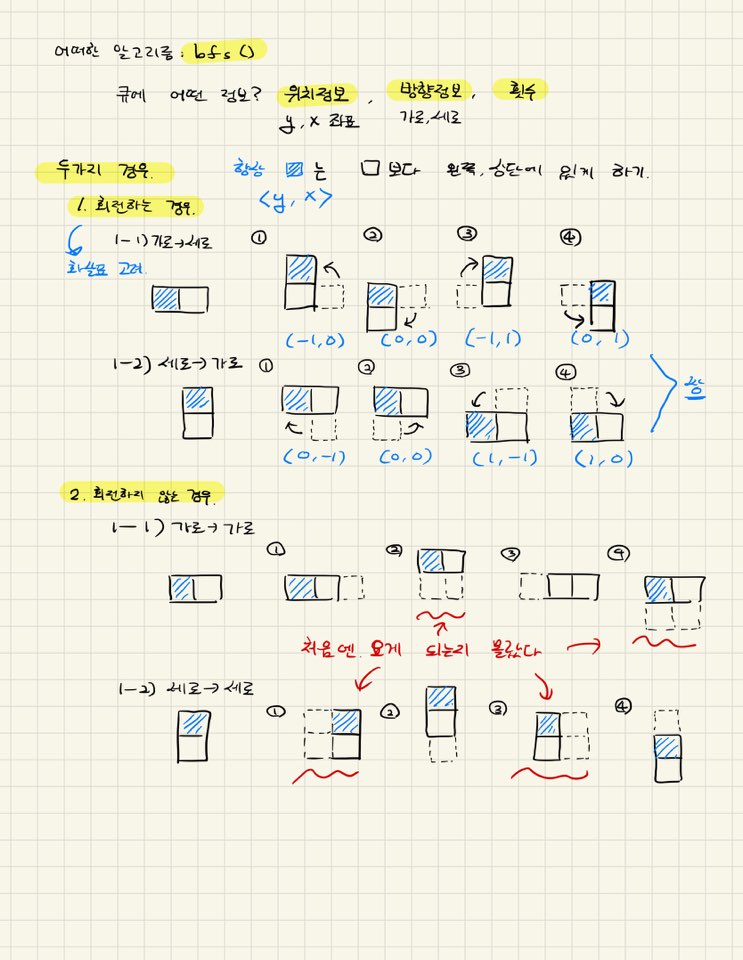 어떠한 알고리즘: bfs()
큐에 어떤 정보? 위치정보, 방향정보, 횟수
y, x 좌표 가로, 세로
두가지 경우. 항상 는 보다 왼쪽, 상단에 있게 하기.
<y, x>
1. 회전하는 경우.
1-1) 가로→세로 ① ② ③ ④
화살표 고려.
(-1,0) (0,0) (-1,1) (0,1)
1-2) 세로→가로 ① ② ③ ④
(0,-1) (0,0) (1,-1) (1,0)
2. 회전하지 않는 경우.
1-1) 가로→가로
① ② ③ ④
처음엔 요게 되는지 몰랐다
1-2) 세로→세로
① ② ③ ④